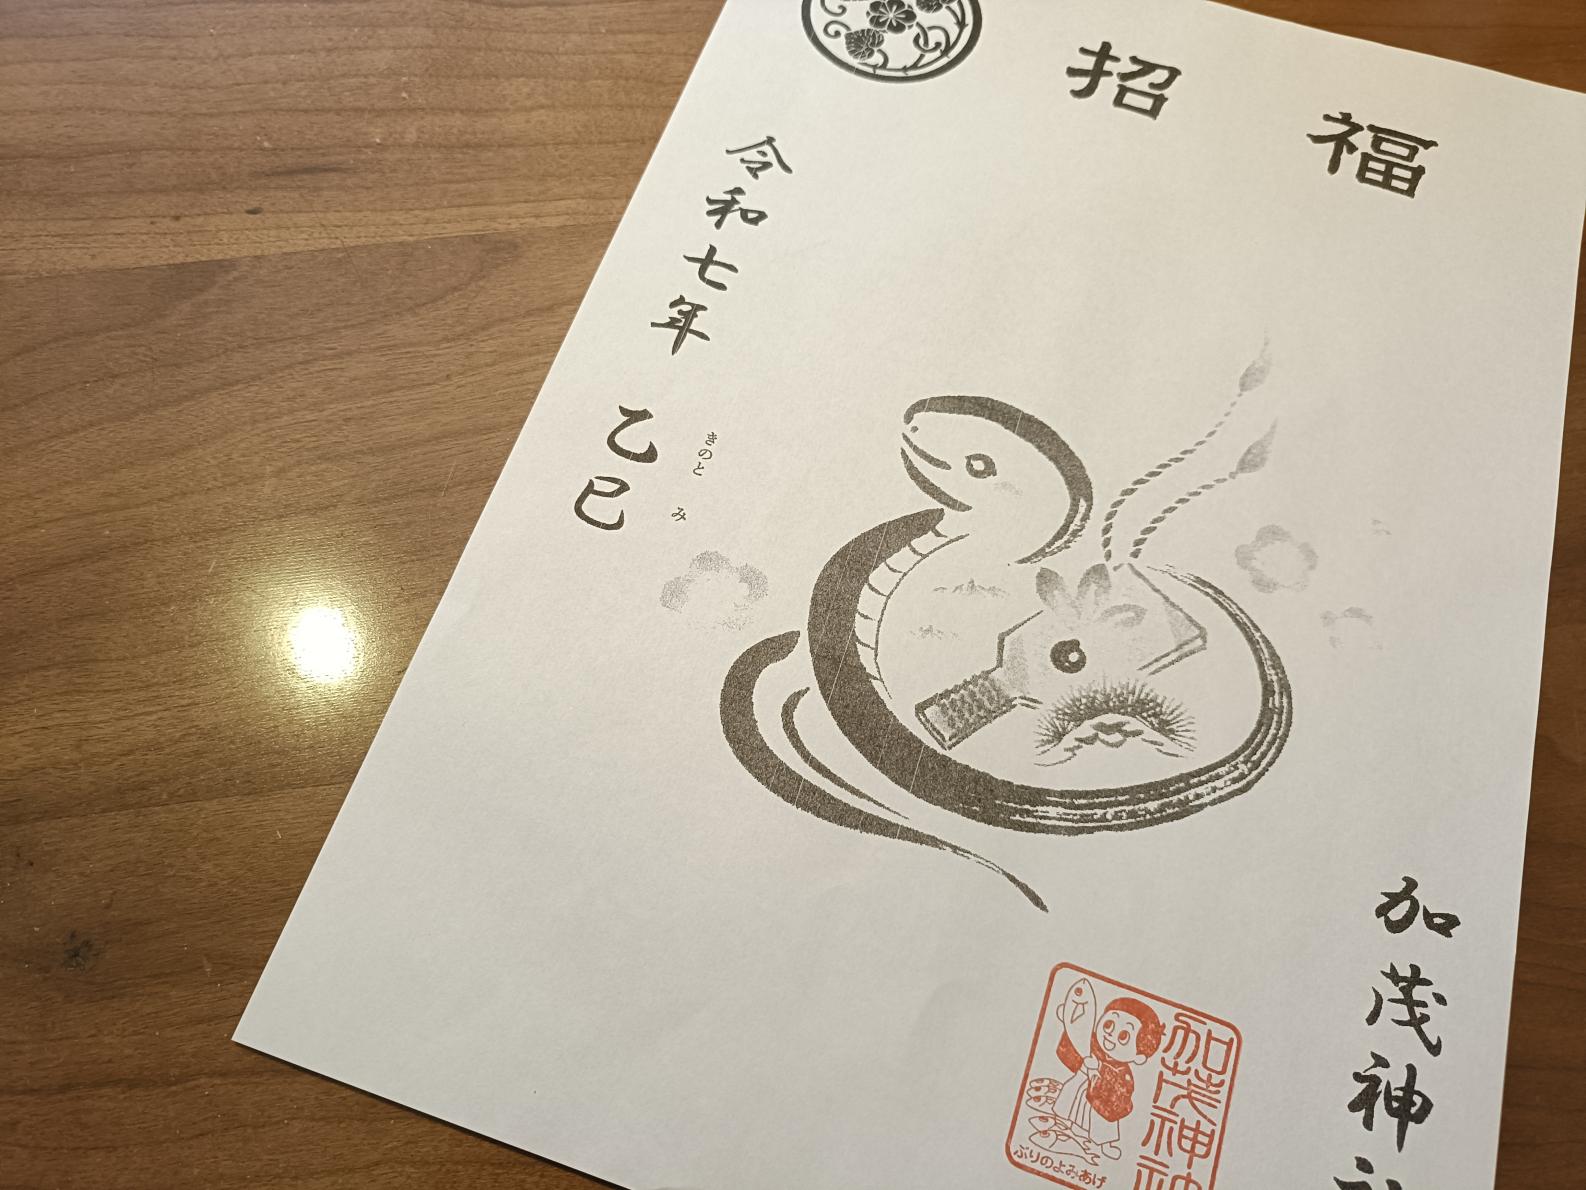 招福
令和七年
乙巳
きのと み
加茂神
加茂神
ぶりのよみあげ